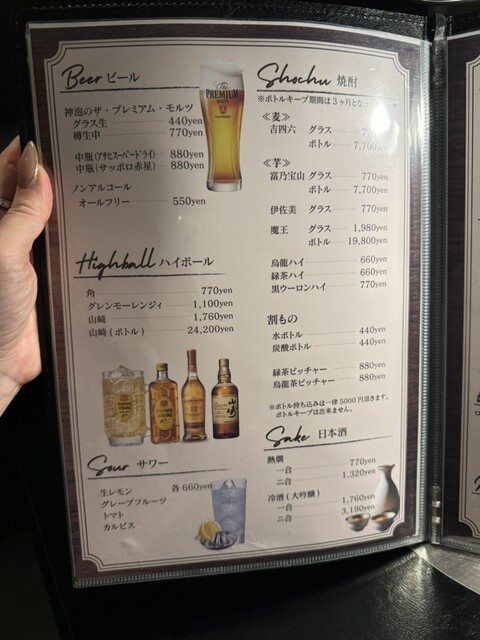 Beer ビール
神泡のザ・プレミアム・モルツ
グラス生 440yen
樽生中 770yen
中瓶(アサヒスーパードライ) 880yen
中瓶(サッポロ赤星) 880yen
ノンアルコール
オールフリー 550yen
The PREMIUM MALT'S
Highball ハイボール
角 770yen
グレンモーレンジィ 1,100yen
山崎 1,760yen
山崎(ボトル) 24,200yen
山崎
Sour サワー
生レモン 各660yen
グレープフルーツ
トマト
カルピス
Shochu 焼酎
※ボトルキープ期間は3ヶ月とな
≪麦≫
吉四六 グラス
ボトル 7,700
≪芋≫
富乃宝山 グラス 770yen
ボトル 7,700yen
伊佐美 グラス 770yen
魔王 グラス 1,980yen
ボトル 19,800yen
烏龍ハイ 660yen
緑茶ハイ 660yen
黒ウーロンハイ 770yen
割もの
水ボトル 440yen
炭酸ボトル 440yen
緑茶ピッチャー 880yen
烏龍茶ピッチャー 880yen
※ボトル持ち込みは一律5000円頂きます。
ボトルキープは出来ません。
Sake 日本酒
熱燗
一合 770yen
二合 1,320yen
冷酒(大吟醸)
一合 1,760yen
二合 3,190yen